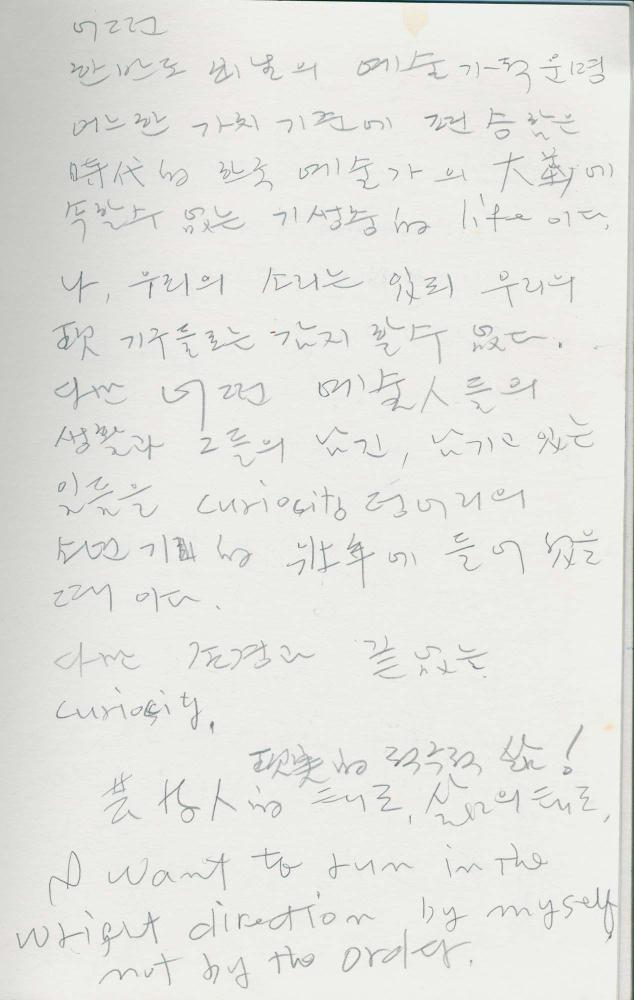 어떤
한반도 비날의 예술가적 운명
어느한 가치 기준에 편승함은
時代的 한국 예술가의 大義에
속할수 없는 기성층的 life 이다.
나, 우리의 소리는 있되 우리의
現 기구들로는 감지 할수 없다.
다만 어떤 예술人들의
생활과 그들의 남긴, 남기고 있는
일들을 curiosity 덩어리의
소년기 的 壯年에 들어 있을
때 이다.
다만 존경과 끝없는
curiosity.
現実的 적극적 삶!
芸術人的 태로, 삶의 태로,
I want to run in the
wright direction by myself,
not by the order.